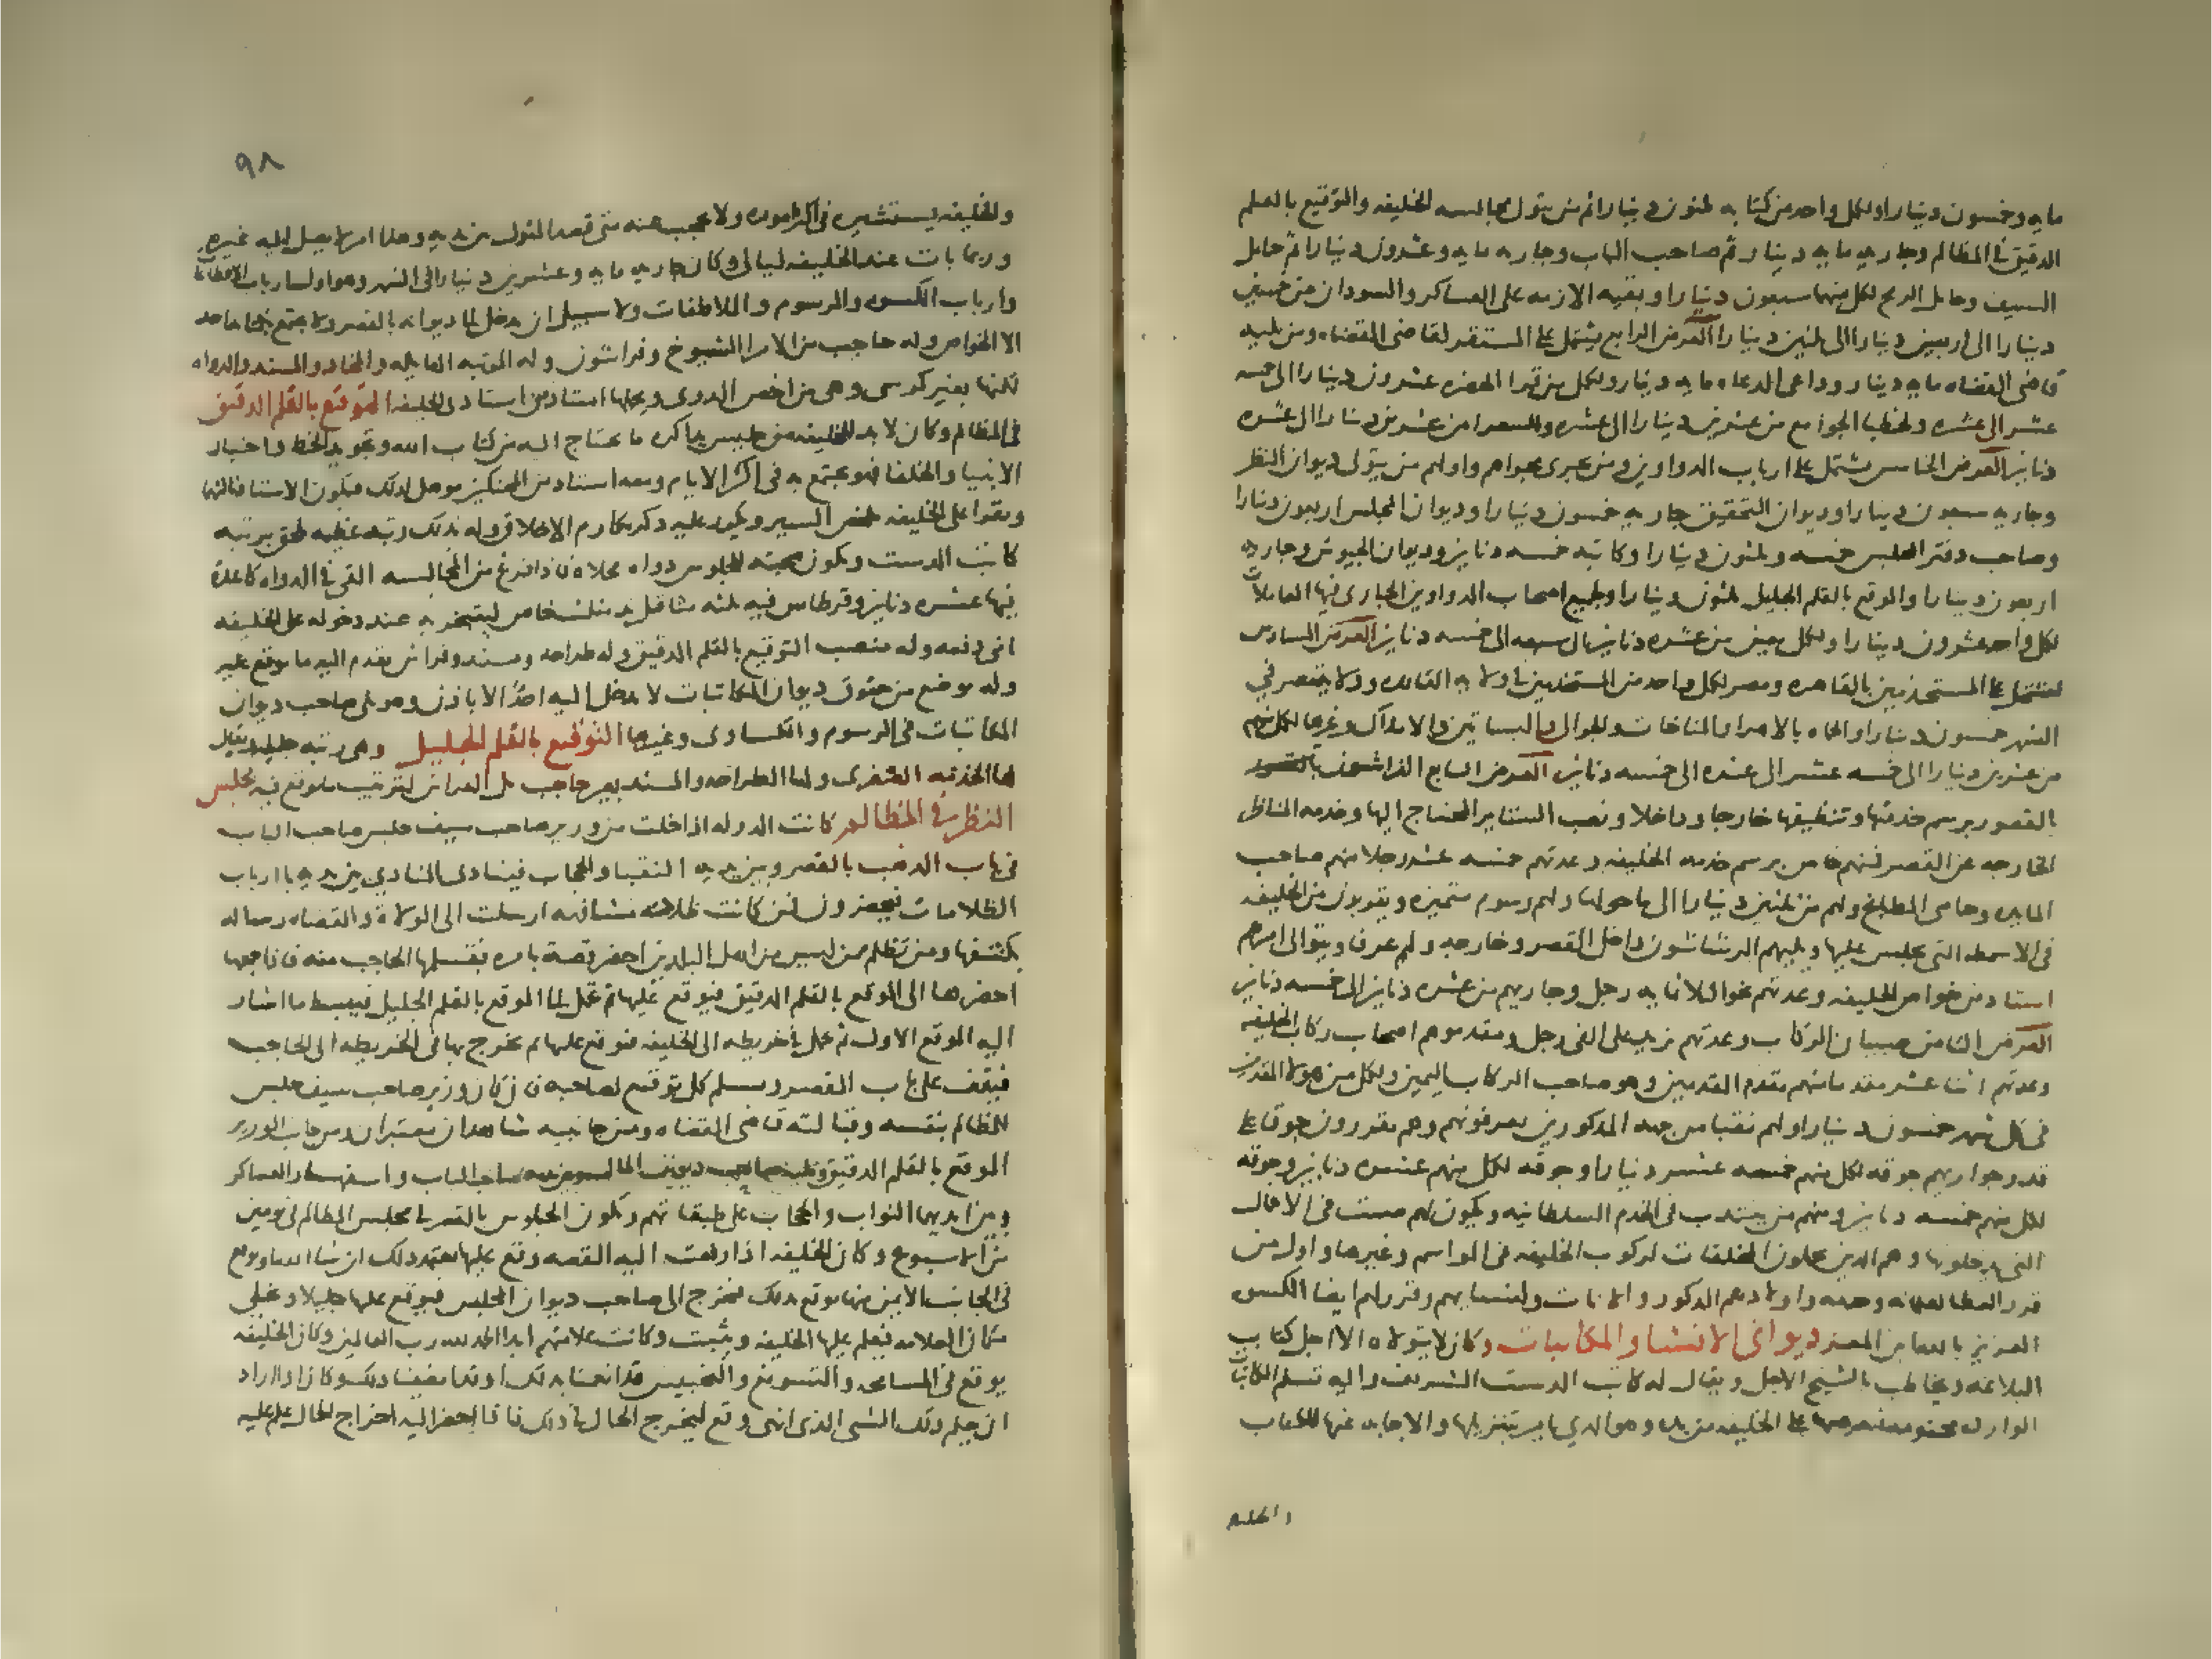 مايه وخمسون دينارا ولكل واحد من كتابه ثلثون دينارا ثم من يتولى مجالسه الخليفه والتوقيع بالعلم
الدقيق في المظالم وجاريه مايه دينار ثم صاحب الباب وجاريه مايه وعشرون دينارا ثم حامل
السيف وحامل الرمح لكل منهما سبعون دينارا وبقيه الازمه على العساكر والسودان من خمسين
دينارا الى اربعين دينارا الى ثلثين دينارا العرض الرابع يشتمل على المستقر لقاضى القضاه ومن يليه
قاضى القضاه مايه دينار وداعى الدعاه مايه دينار ولكل من قرا الحضره عشرون دينارا الى خمسه
عشر الى عشره ولخطبا الجوامع من عشرين دينارا الى عشره وللشعرا من عشرين دينارا الى عشره
دنانير العرض الخامس يشتمل على ارباب الدواوين ومن يجرى مجراهم واولهم من يتولى ديوان النظر
وجاريه سبعون دينارا وديوان التحقيق جاريه خمسون دينارا وديوان المجلس اربعون دينارا
وصاحب دفتر المجلس خمسه وثلثون دينارا وكاتبه خمسه دنانير وديوان الجيوش وجاريه
اربعون دينارا والموقع بالقلم الجليل ثلثون دينارا ولجميع اصحاب الدواوين الجارى فيها المعاملات
لكل واحد عشرون دينارا ولكل معين من عشره دنانير الى سبعه الى خمسه دنانير العرض السادس
يشتمل على المستخدمين بالقاهره ومصر لكل واحد من المستخدمين في ولايه القاهره وولايه مصر في
الشهر خمسون دينارا والحماه بالاهرا والمناخات والجوالي والبساتين والاملاك وغيرها لكل منهم
من عشرين دينارا الى خمسه عشر الى عشره الى خمسه دنانير العرض السابع الفراشون
بالقصور برسم خدمتها وتنظيفها خارجا وداخلا ونصب الستاير المحتاج اليها وخدمه المناظر
الخارجه عن القصر فمنهم خاص برسم خدمه الخليفه وعدتهم خمسه عشر رجلا منهم صاحب
المايده وحامى المطابخ ولهم من ثلثين دينارا الى ما حولها ولهم رسوم متميزه ويقربون من الخليفه
فى الاسمطه التى يجلس عليها ويليهم الرشاشون داخل القصر وخارجه ولهم عرفا ويتولى امرهم
استاد من خواص الخليفه وعدتهم نحو الثلاثمايه رجل وجاريهم من عشره دنانير الى خمسه دنانير
العرض الثامن صبيان الركاب وعدتهم تزيد على الفى رجل ومقدموهم اصحاب ركاب الخليفه
وعدتهم اثنا عشر مقدما منهم مقدم المقدمين وهو صاحب الركاب اليمين ولكل من هولا المقدمين
فى كل شهر خمسون دينارا ولهم نقبا من جهه المذكورين يعرفونهم وهم مقررون جوقا على
قدر جواريهم جوقه لكل منهم خمسه عشر دينارا وجوقه لكل منهم عشره دنانير وجوقه
لكل منهم خمسه دنانير ومنهم من ينتدب فى الخدم السلطانيه ويكون لهم صيت فى الاعمال
التى يدخلونها وهم الذين يحملون المخلفات لركوب الخليفه فى المواسم وغيرها واول من
قرر العطا لغلمانه وخدمه واولادهم الذكور والاناث ولنسايهم وقرر لهم ايضا الكسوه
العزيز بالله بن المعز ديوان الانشا والمكاتبات وكان لا يتولاه الا اجل كتاب
البلاغه ويخاطب بالشيخ الاجل ويقال له كاتب الدست الشريف واليه تسلم المكاتبات
الوارده مختومه فيعرضها على الخليفه من يده وهو الذي يامر بتنزيلها والاجابه عنها للكتاب
والخليفه
٩٨
والخليفه يستشيره فى اكثر اموره ولا يحجب عنه متى قصد المثول بين يديه وهذا امر لا يصل اليه غيره
وربما بات عند الخليفه ليالى وكان جاريه مايه وعشرين دينارا فى الشهر وهو اول ارباب الاقطاعات
وارباب الكسوه والرسوم والملاطفات ولا سبيل ان يدخل الى ديوانه بالقصر ولا يجتمع بكتابه احد
الا الخواص وله حاجب من الامرا الشيوخ وفراشون وله المرتبه الهايله والمخاد والمسند والدواه
لكنها بغير كرسى وهى من اخص الدوى ويحملها استاد من استادى الخليفه التوقيع بالقلم الدقيق
فى المظالم وكان لا بد للخليفه من جليس يذاكره ما يحتاج اليه من كتاب الله وتجويد الخط واخبار
الانبيا والخلفا فهو يجتمع به فى اكثر الايام ومعه استاد من المحنكين موهل لذلك فيكون الاستاد ثالثهما
ويقرا على الخليفه ملخص السير ويكرر عليه ذكر مكارم الاخلاق وله بذلك رتبه عظيمه تلحق برتبه
كاتب الدست ويكون صحبته للجلوس دواه محلاه فاذا فرغ من المجالسه القى في الدواه كاغده
فيها عشره دنانير وقرطاس فيه ثلثه مثاقيل ند مثلث خاص ليتبخر به عند دخوله على الخليفه
ثانى دفعه وله منصب التوقيع بالقلم الدقيق وله طراحه ومسند وفراش يقدم اليه ما يوقع عليه
وله موضع من حقوق ديوان المكاتبات لا يدخل اليه احد الا باذن وهو يلى صاحب ديوان
المكاتبات فى الرسوم والكساوى وغيرها التوقيع بالقلم الجليل وهى رتبه جليله ويقال
لها الخدمه الصغرى ولها الطراحه والمسند بغير حاجب بل الفراش لترتيب ما يوقع فيه مجلس
النظر في المظالم كانت الدوله اذا خلت من وزير صاحب سيف جلس صاحب الباب
فى باب الذهب بالقصر وبين يديه النقبا والحجاب فينادى المنادي بين يديه يا ارباب
الظلامات فيحضرون فمن كانت ظلامته مشافهه ارسلت الى الولاة والقضاه رساله
بكشفها ومن تظلم ممن ليس من اهل البلدين احضر قصة بامره فيتسلمها الحاجب منه فاذا جمعها
احضرها الى الموقع بالقلم الدقيق فيوقع عليها ثم تحمل الى الموقع بالقلم الجليل فيبسط ما اشار
اليه الموقع الاول ثم تحمل في خريطه الى الخليفه فيوقع عليها ثم تخرج بها فى الخريطه الى الحاجب
فيقف على باب القصر ويسلم كل توقيع لصاحبه فان كان وزير صاحب سيف جلس
للمظالم بنفسه وقبالته قاضى القضاه ومن جانبيه شاهدان معتبران ومن جانب الوزير
الموقع بالقلم الدقيق ويليه صاحب ديوان المال وبين يديه صاحب الباب واسفهسلار العساكر
وبين ايديهما النواب والحجاب على طبقاتهم ويكون الجلوس بالقصر في مجلس المظالم فى يومين
من الاسبوع وكان الخليفه اذا رفعت اليه القصه وقع عليها يعتمد ذلك ان شا الله ويوقع
فى الجانب الايمن منها يوقع بذلك فتخرج الى صاحب ديوان المجلس فيوقع عليها جليلا ويخلى
مكان العلامه فيعلم عليها الخليفه وتثبت وكانت علامتهم ابدا الحمد لله رب العالمين وكان الخليفه
يوقع فى المسامحه والتسويغ والتحبيس قد انعمنا بذلك او قد امضينا ذلك وكان اذا اراد
ان يعلم ذلك الشى الذى انهى وقع ليخرج الحال في ذلك فاذا احضر اليه اخراج الحال علم عليه